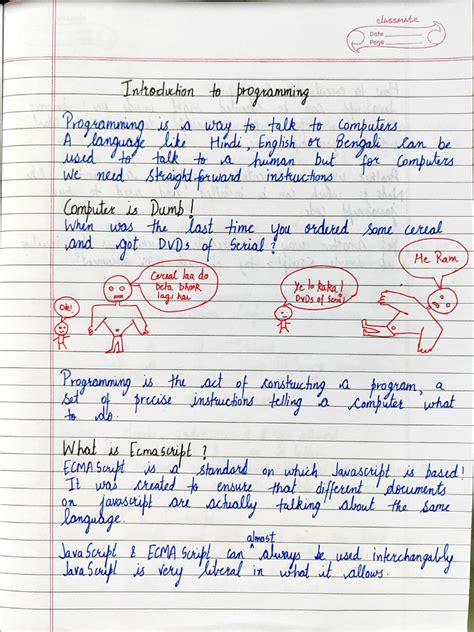 classmate
Date
Page
Introduction to programming
Programming is a way to talk to Computers
A language like Hindi, English or Bengali can be
used to talk to a human but for computers
We need straightforward instructions
Computer is Dumb!
When was the last time you ordered some cereal
and got DVDs of Serial?
Ok!
Cereal laa do
beta bhook
lagi hai
Ye lo kaka!
DVDs of Serial
Me Ram
Programming is the act of constructing a program, a
set of precise instructions telling a computer what
to do.
What is EcmaScript?
ECMAScript is a standard on which Javascript is based!
It was created to ensure that different documents
on javascript are actually talking about the same
language.
JavaScript & ECMAScript can almost always be used interchangably
JavaScript is very liberal in what it allows.